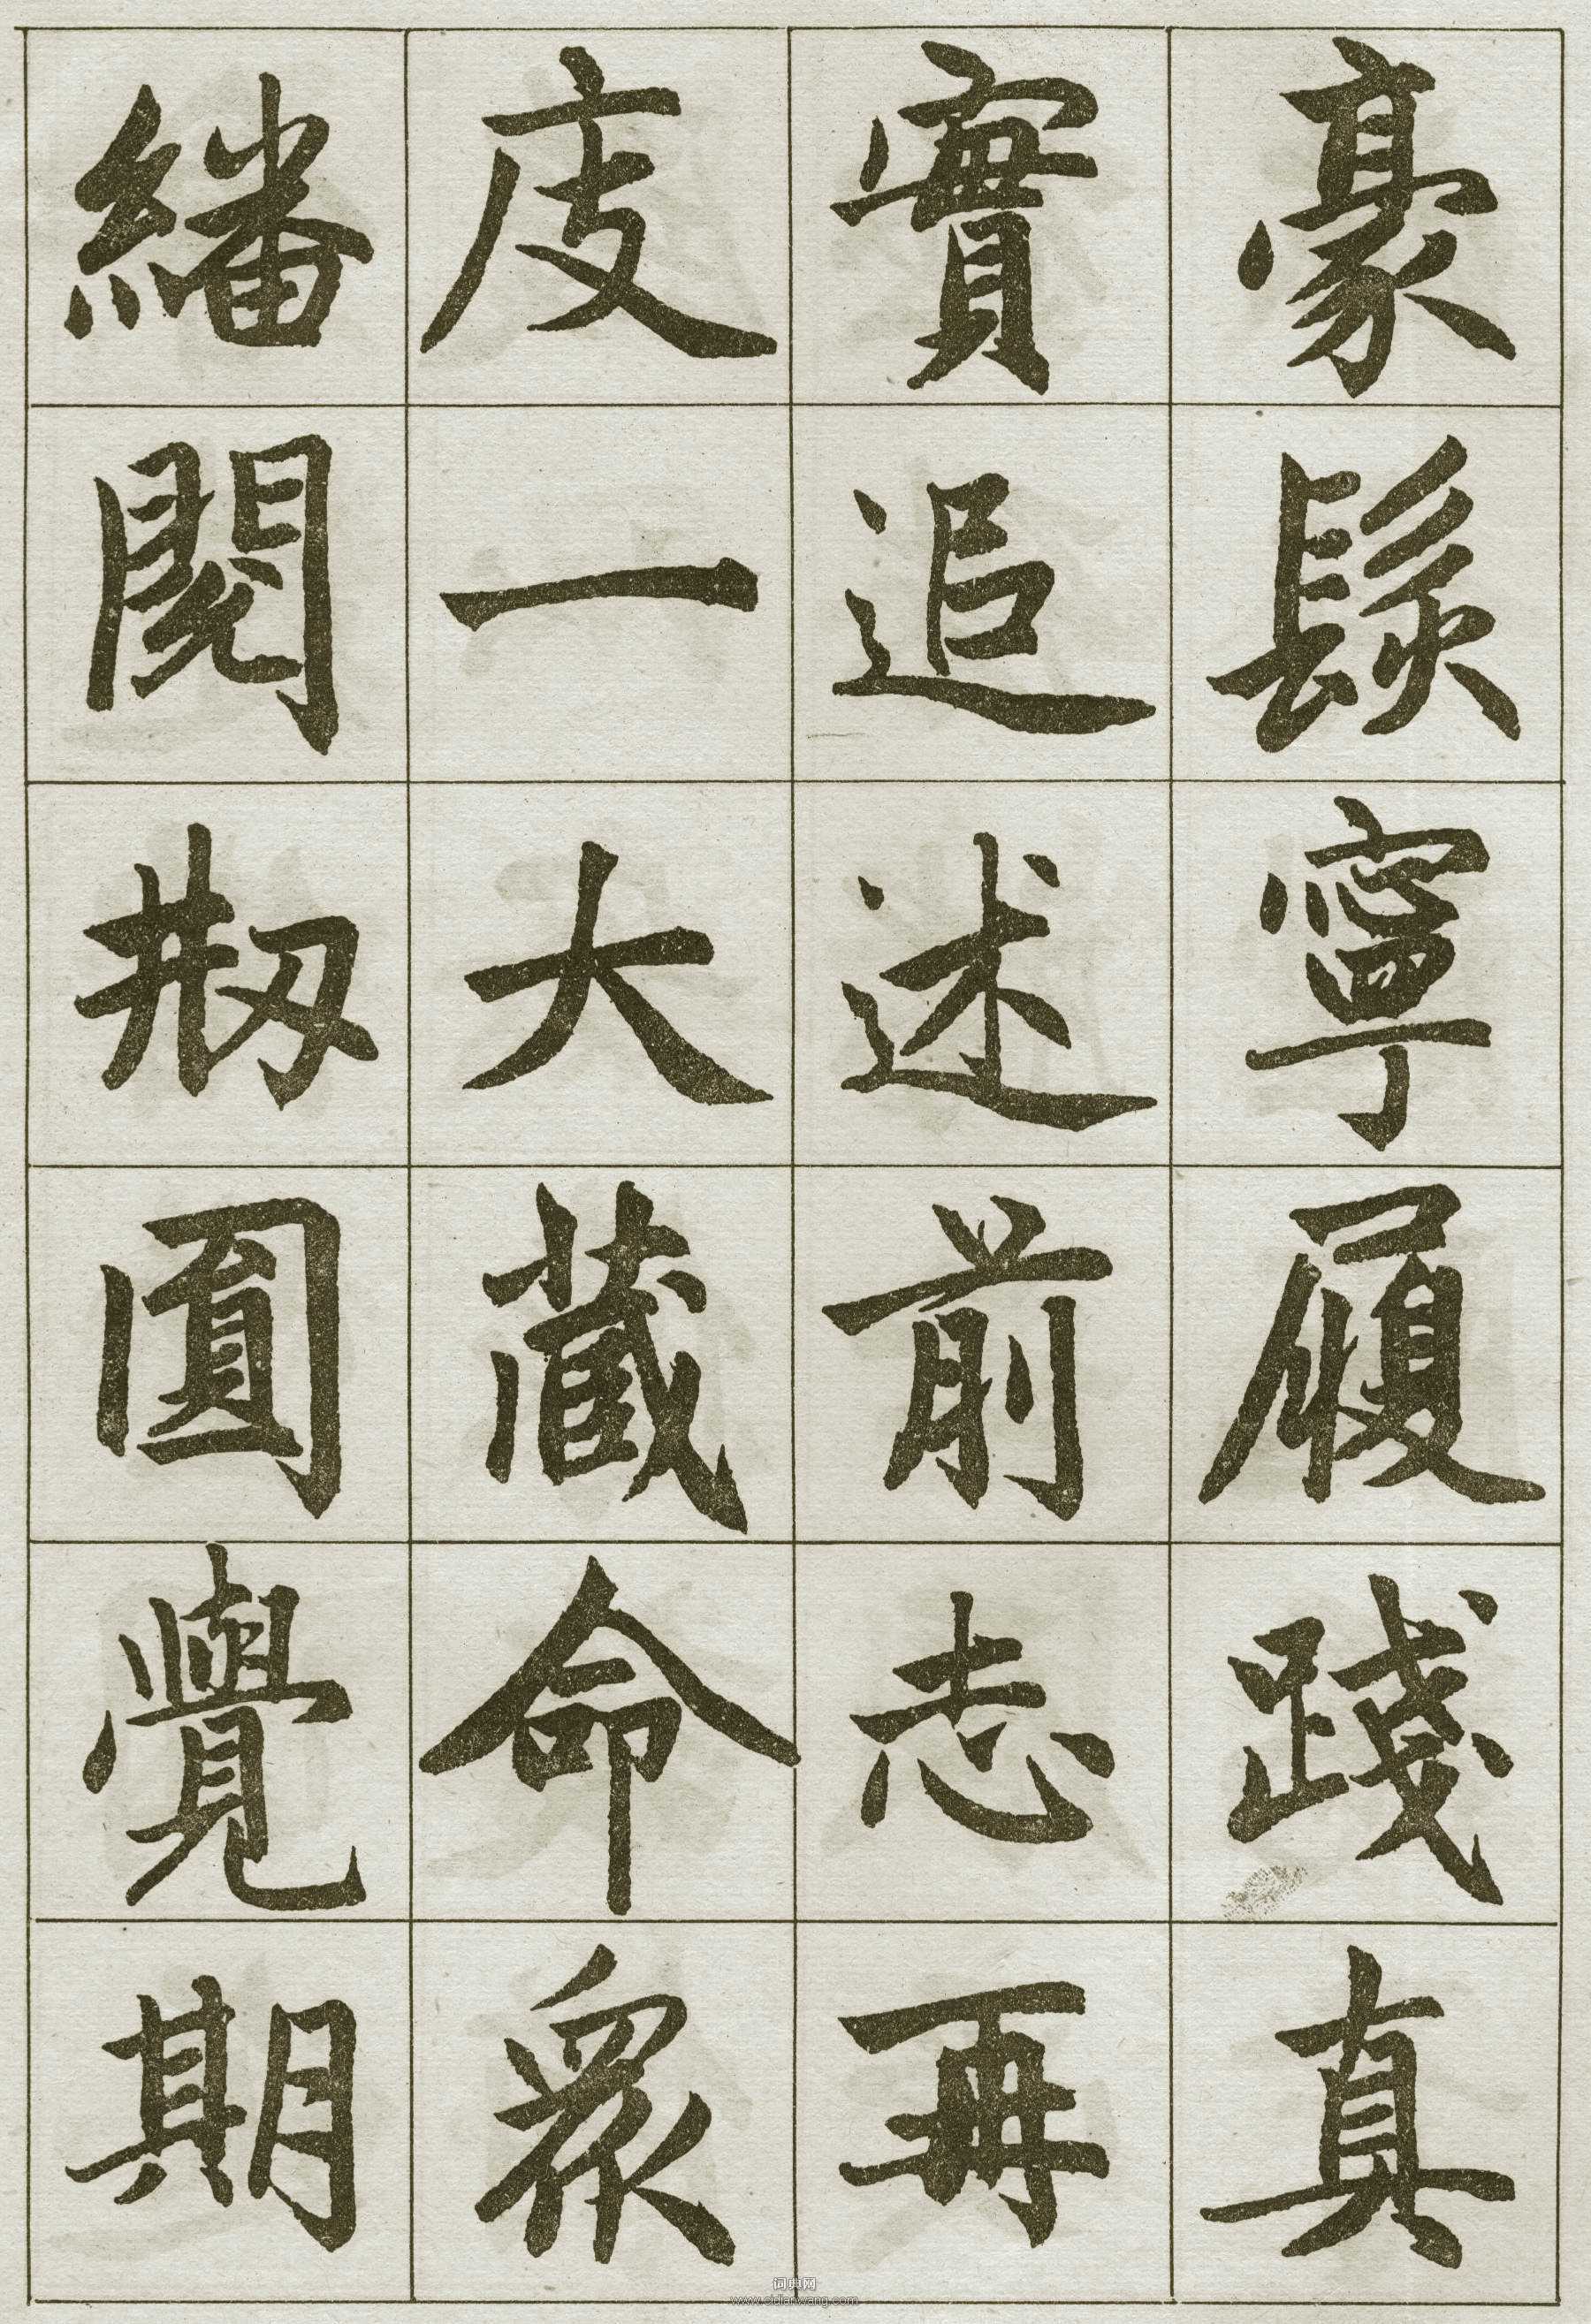 豪髮寧履踐真
實追述前志再
庋一大藏命眾
繙閱刱圓覺期
词典网
www.cidianwang.com